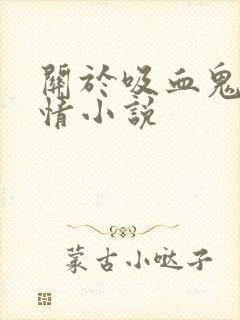 關於吸血鬼
情小說
蒙古小噠子